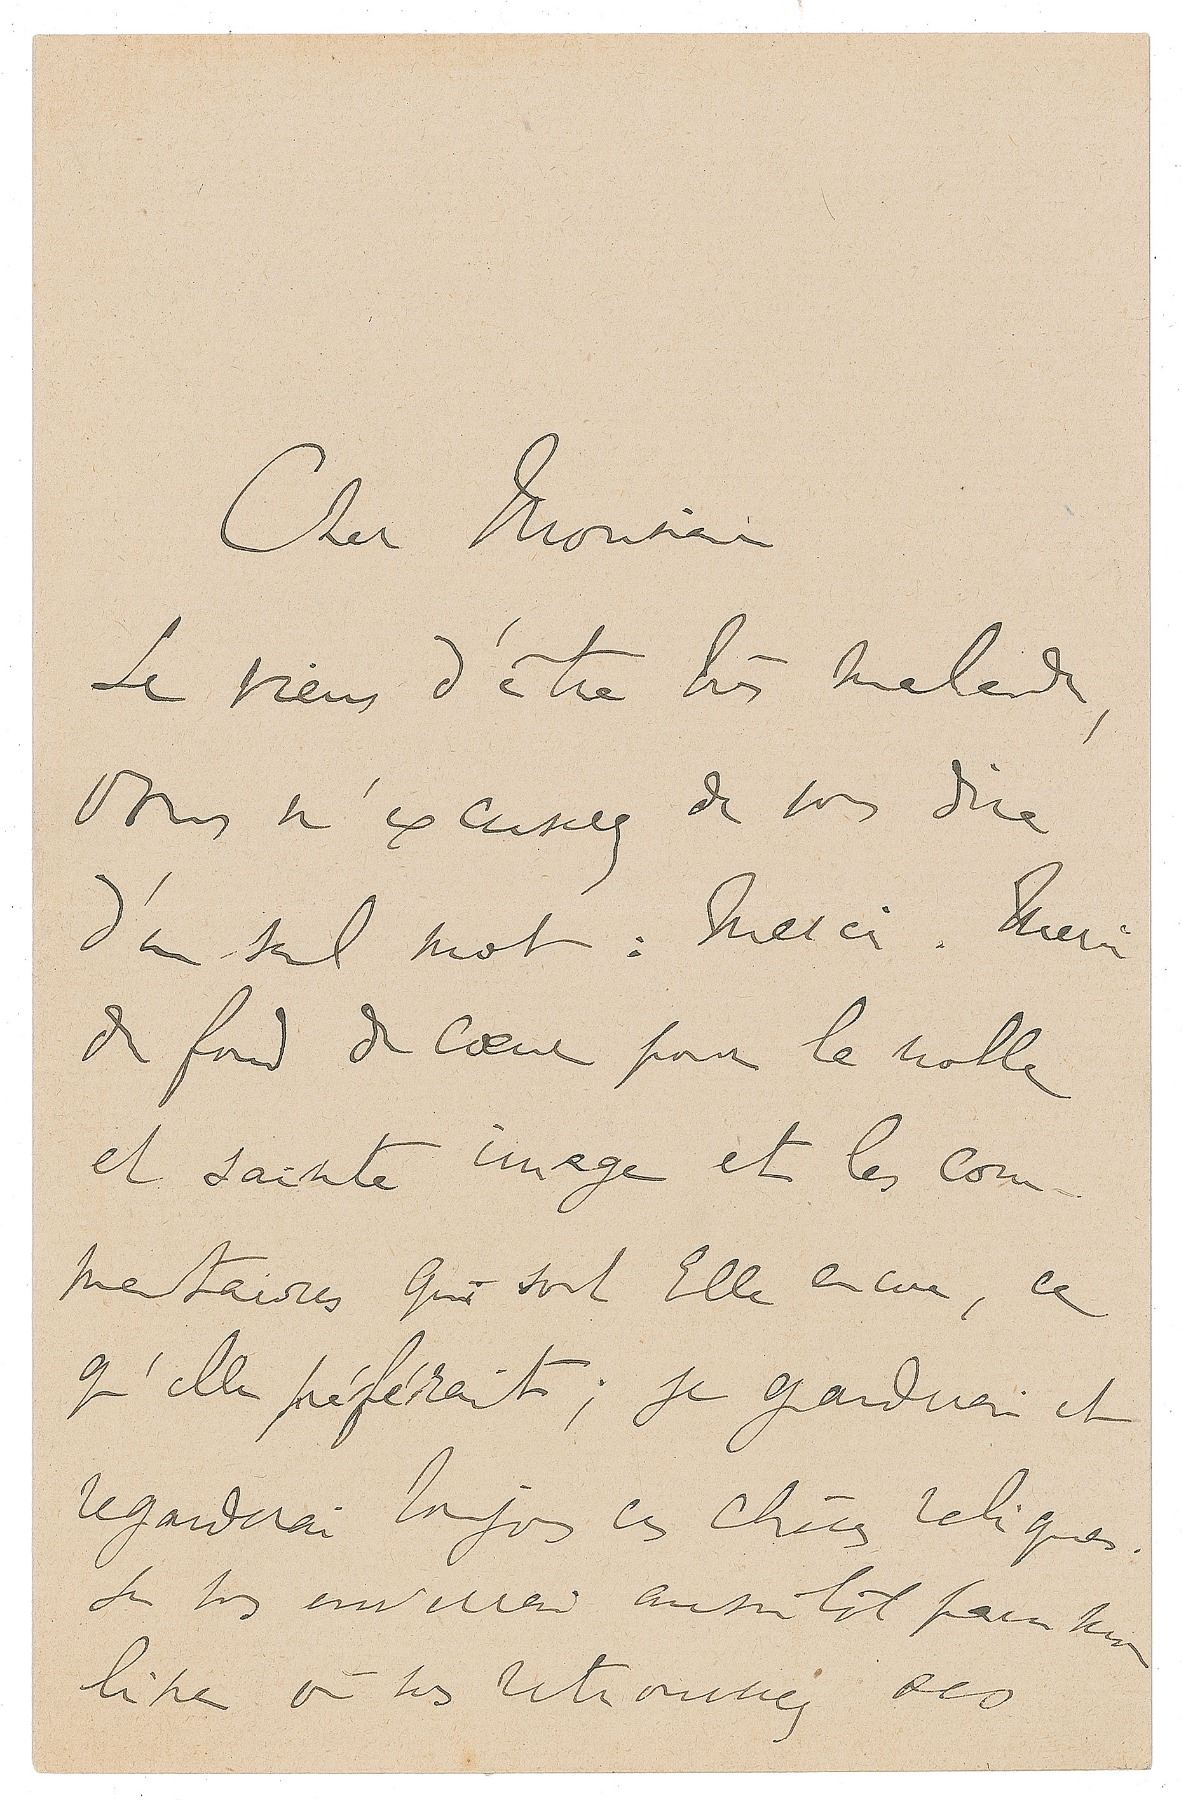 Cher Monsieur
Je viens d'être très malade,
vous m'excuserez de vous dire
d'un seul mot : Merci. Merci
du fond du cœur pour la noble
et sainte image et les com-
mentaires qui sont Elle encore, ce
qu'elle préférait ; je garderai et
regarderai toujours ces chères reliques.
Je vous enverrai aussitôt paru mon
livre où vous retrouverez des